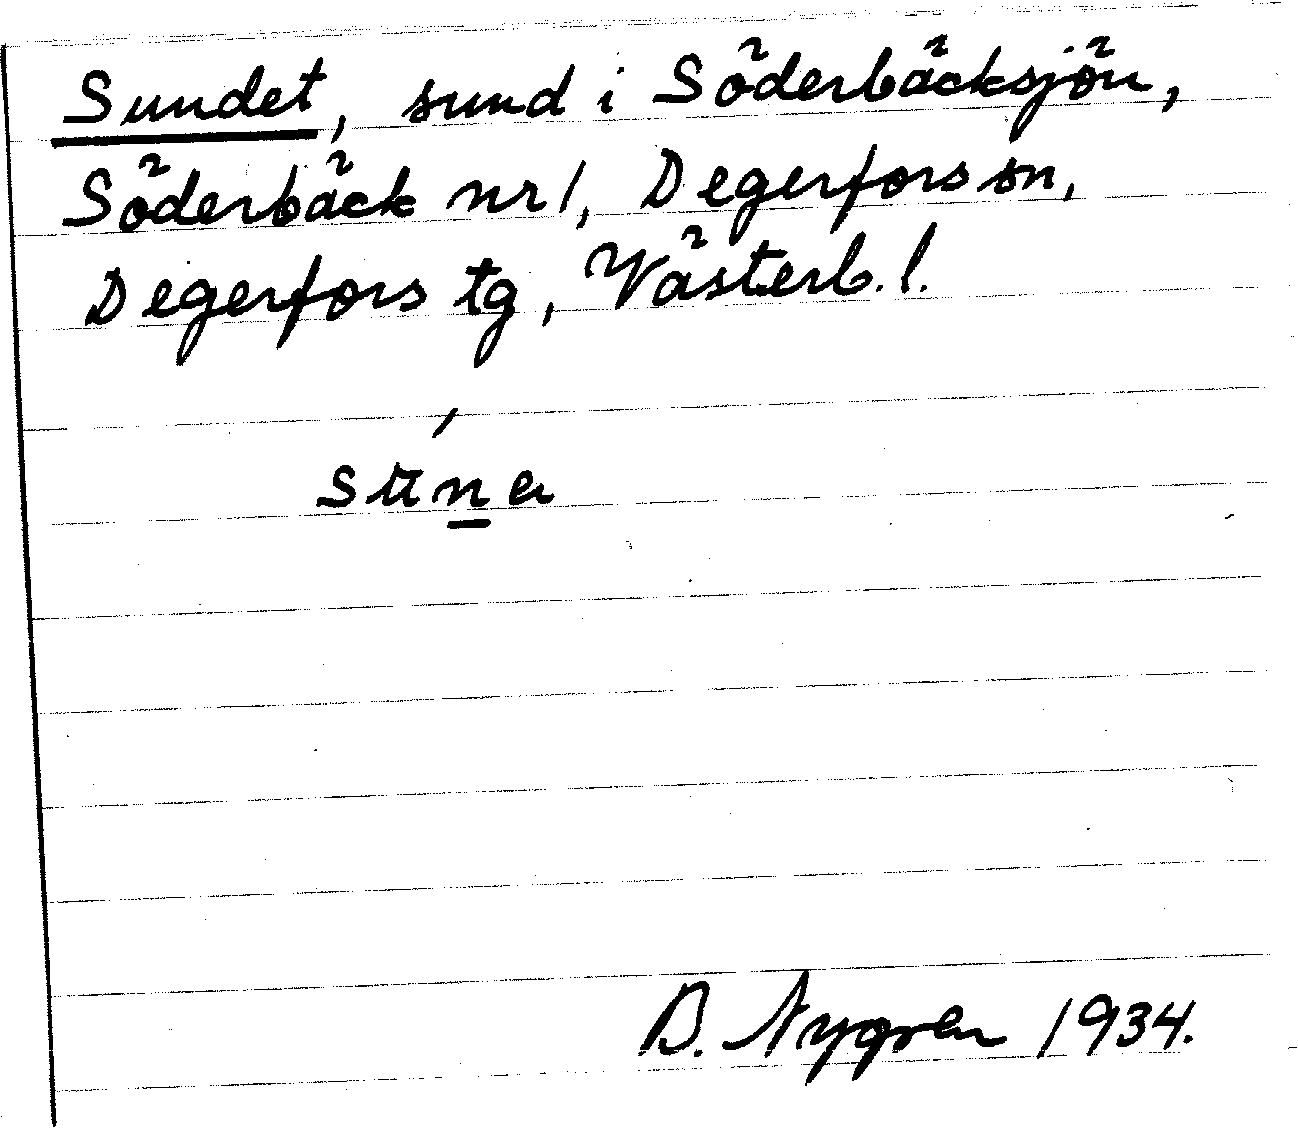 Sundet, sund i Söderbäcksjön,
Söderbäck nr 1, Degerfors sn,
Degerfors tg, Västerb. l.
B. Nygren 1934.